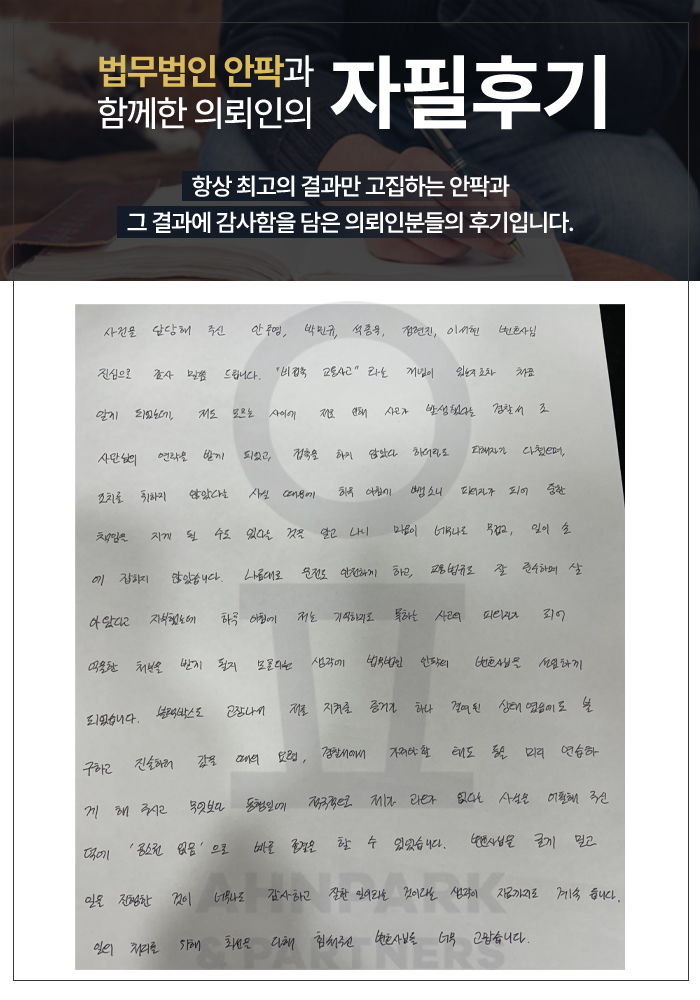 법무법인 안팍과
함께한 의뢰인의
자필후기
항상 최고의 결과만 고집하는 안팍과
그 결과에 감사함을 담은 의뢰인분들의 후기입니다.
사건을 담당해 주신 안주영, 박민규, 석종욱, 정현진, 이서현 변호사님
진심으로 감사 말씀 드립니다. "비접촉 교통사고" 라는 개념이 있는지조차 처음
알게 되었는데, 저도 모르는 사이에 저로 인해 사고가 발생했다는 경찰서 조
사관님의 연락을 받게 되었고, 접촉을 하지 않았다 하더라도 피해자가 다쳤으며,
조치를 취하지 않았다는 사실 때문에 하루 아침에 뺑소니 피의자가 되어 중한
책임을 지게 될 수도 있다는 것을 알고 나니 마음이 너무나도 무겁고, 일이 손
에 잡히지 않았습니다. 나름대로 운전도 안전하게 하고, 교통법규도 잘 준수하며 살
아 왔다고 자부했는데 하루 아침에 저는 기억하지도 못하는 사고의 피의자가 되어
억울한 처분을 받게 될지 모른다는 생각에 법무법인 안팍의 변호사님을 선임하게
되었습니다. 블랙박스도 고장나서 저를 지켜줄 증거가 하나 결여된 상태였음에도 불
구하고 진술하러 갔을 때의 요령, 경찰서에서 가져야할 태도 등을 미리 연습하
게 해 주시고 무엇보다 동행인에 적극적으로 제가 죄가 없다는 사실을 어필해 주신
덕에 '공소권 없음' 으로 빠른 종결을 할 수 있었습니다. 변호사님을 굳게 믿고
일을 진행한 것이 너무나도 감사하고 잘한 일이라는 것이라는 생각이 지금까지도 계속 듭니다.
일의 처리를 위해 최선을 다해 힘써주신 변호사님들 너무 고맙습니다.
AHNPARK
& PARTNERS